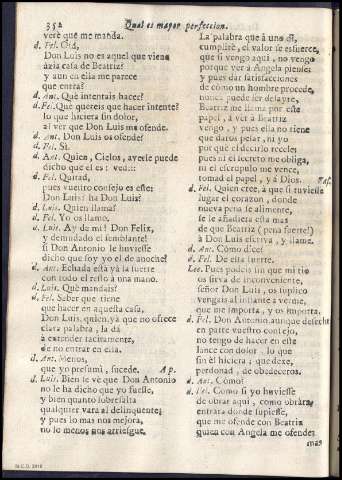 352
Qual es mayor perfeccion.
verè què me manda.
d. Fel. Oid,
Don Luis no es aquel que viene
àzia casa de Beatriz?
y aun en ella me parece
que entra?
d. Ant. Què intentais hacer?
d. Fel. Què quereis que hacer intente?
lo que hiciera sin dolor,
al ver que Don Luis me ofende.
d. Ant. Don Luis os ofende?
d. Fel. Sì.
d. Ant. Quien, Cielos, averle puede
dicho que el es: ved:::
d. Fel. Quitad,
pues vuestro consejo es este:
Don Luis? ha Don Luis?
d. Luis. Quien llama?
d. Fel. Yo os llamo.
d. Luis. Ay de mi! Don Felix,
y demudado el semblante!
si Don Antonio le huviesse
dicho que soy yo el de anoche?
d. Ant. Echada està yà la suerte
con todo el resto à una mano.
d. Luis. Què mandais?
d. Fel. Saber que tiene
que hacer en aquesta casa,
Don Luis, quien, yà que no ofrece
clara palabra, la dà
à entender tacitamente,
de no entrar en ella.
d. Ant. Menos,
que yo presumì, sucede. Ap.
d. Luis. Bien se vè que Don Antonio
no le ha dicho que yo fuesse,
y bien quanto sobresalta
qualquier vara al delinquente;
y pues lo mas nos mejora,
no lo menos nos arriesgue.
La palabra que à uno dì,
cumplirè, el valor se esfuerce,
que si vengo aqui, no vengo
porque vèr à Angela piense;
y pues dar satisfacciones
de còmo un hombre procede,
nunca puede ser desayre,
Beatriz me llama por este
papel, à vèr à Beatriz
vengo, y pues ella no tiene
que daros pesar, ni yo
por què el decirlo recele;
pues ni el secreto me obliga,
ni el escrupulo me vence,
tomad el papel, y à Dios. Vas.
d. Fel. Quien cree, à que si tuviesse
lugar el corazon, donde
nueva pena se alimente,
se le añadiera esta mas
de que Beatriz (pena fuerte!)
à Don Luis escriva, y llame.
d. Ant. Còmo dice?
d. Fel. De esta suerte.
Lee. Pues podeis sin que mi tio
os sirva de inconveniente,
señor Don Luis, os suplico
vengais al instante à verme,
que me importa, y os importa.
d. Fel. Don Antonio, aunque deseche
en parte vuestro consejo,
no tengo de hacer en este
lance con dolor, lo que
sin èl hiciera; que dexe,
perdonad, de obedeceros.
d. Ant. Còmo?
d. Fel. Como si yo huviesse
de obrar aqui, como obràra
entrara donde supiesse,
que me ofende con Beatriz
quien con Angela me ofende;
mas